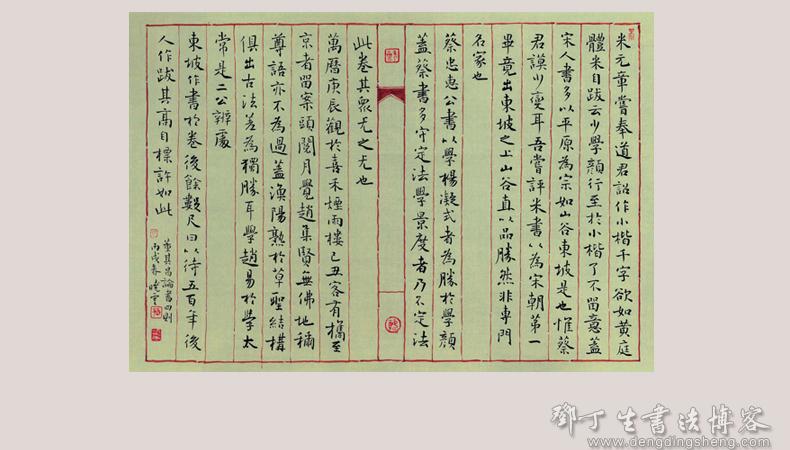 米元章嘗奉道君詔作小楷千字欲如黄庭
體米自跋云少學顔行至於小楷了不留意蓋
宋人書多以平原為宗如山谷東坡是也惟蔡
君謨少變耳吾嘗評米書以為宋朝第一
畢竟出東坡之上山谷直以品勝然非專門
名家也
蔡忠惠公書以學楊凝式者為勝於學顔
蓋蔡書多守定法學景度者乃不定法
此卷其尤之尤也
萬曆庚辰觀於喜禾煙雨樓己丑客有攜至
京者留案頭閱月覺趙集賢無佛地稱
尊語亦不為過蓋漁陽熟於草聖結構
俱出古法差為獨勝耳學趙易於學太
常是二公辨處
東坡作書於卷後餘數尺曰以待五百年後
人作跋其高自標許如此
董其昌論書四則
丙戌春曉雲
鄧丁生書法博客
www.dengdingsheng.com